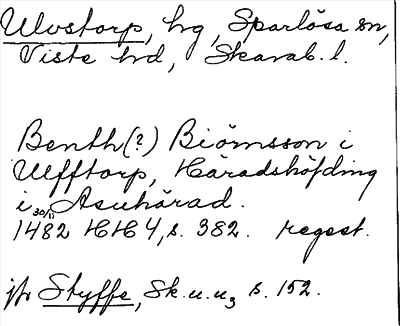 Ulvstorp, hg, Sparlösa sn,
Viste hd, Skarab. l.
Benth(?) Biörnsson i
Ulfftorp, Häradshöfding
i Asuhärad.
30/11
1482 HH 4, s. 382. regest.
jfr Styffe, Sk. u. u., s. 152.